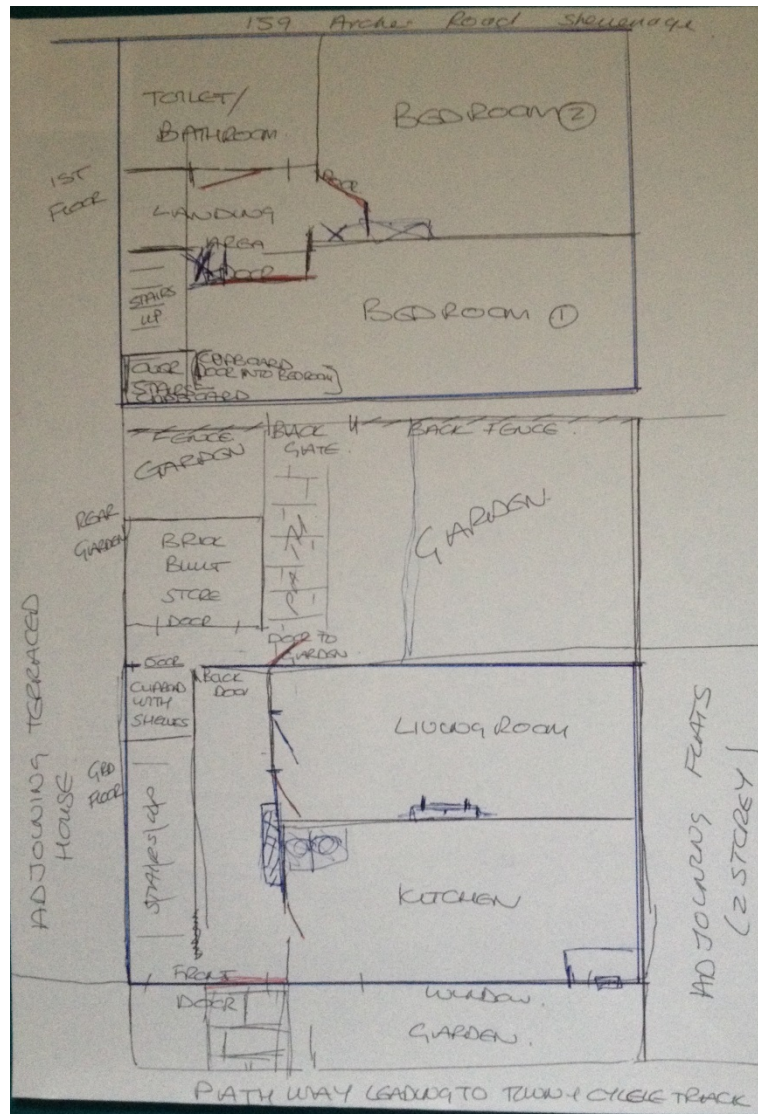 159 Archer Road Stevenage
TOILET/
BATHROOM
BEDROOM ②
1ST
FLOOR
DOOR
LANDING
AREA
DOOR
STAIRS
UP
BEDROOM ①
OVER
STAIRS
CUPBOARD
(CUPBOARD
DOOR INTO BEDROOM)
FENCE
BACK
GATE
BACK FENCE
GARDEN
GARDEN
REAR
GARDEN
BRICK
BUILT
STORE
DOOR
DOOR TO
GARDEN
DOOR
BACK
DOOR
CUPBOARD
WITH
SHELVES
LIVING ROOM
GRD
FLOOR
STAIRS UP
KITCHEN
ADJOINING TERRACED
HOUSE
ADJOINING FLATS
(2 STOREY)
FRONT
DOOR
WINDOW
GARDEN
PATH WAY LEADING TO TOWN & CYCLE TRACK